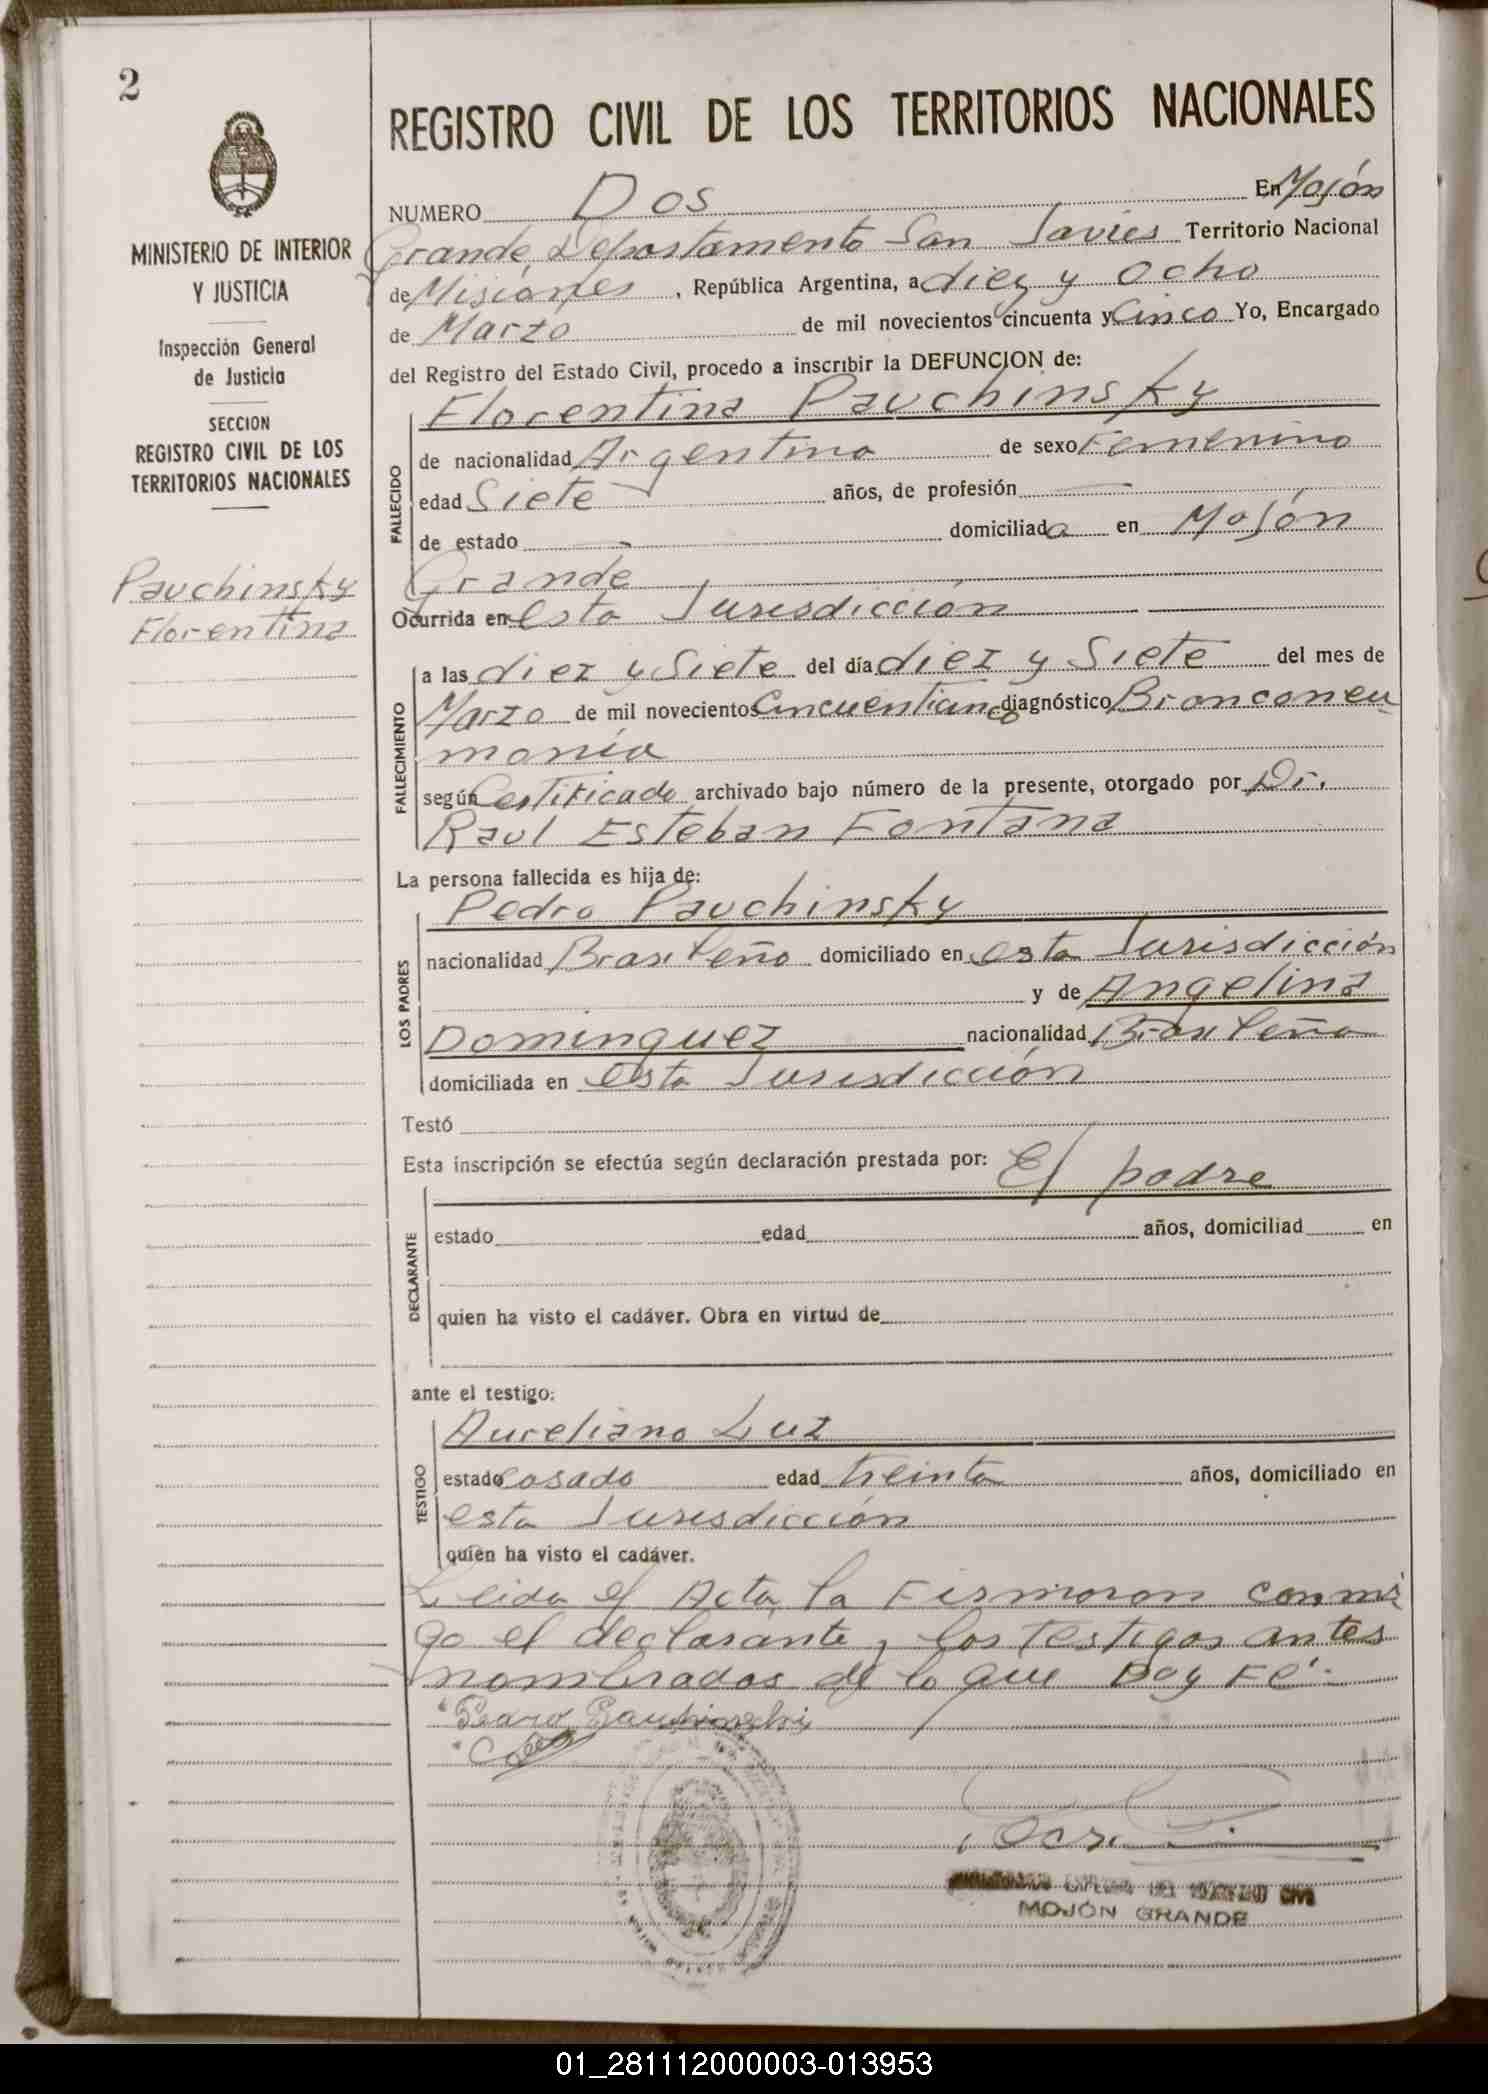 2
MINISTERIO DE INTERIOR
Y JUSTICIA
Inspección General
de Justicia
SECCION
REGISTRO CIVIL DE LOS
TERRITORIOS NACIONALES
Pauchinsky
Florentina
REGISTRO CIVIL DE LOS TERRITORIOS NACIONALES
NUMERO Dos En Mojón
Grande, Departamento San Javier Territorio Nacional
de Misiones, República Argentina, a diez y ocho
de Marzo de mil novecientos cincuenta y Cinco Yo, Encargado
del Registro del Estado Civil, procedo a inscribir la DEFUNCION de:
Florentina Pauchinsky
FALLECIDO
de nacionalidad Argentina de sexo Femenino
edad Siete años, de profesión —
de estado — domiciliada en Mojón
Grande
Ocurrida en esta Jurisdicción
FALLECIMIENTO
a las diez y Siete del día diez y Siete del mes de
Marzo de mil novecientos diagnóstico Bronconeu-
monía
según Certificado archivado bajo número de la presente, otorgado por Dr.
Raul Esteban Fontana
La persona fallecida es hija de:
Pedro Pauchinsky
LOS PADRES
nacionalidad Brasileño domiciliado en esta Jurisdicción
y de Angelina
Dominguez nacionalidad Brasileña
domiciliada en esta Jurisdicción
Testó
Esta inscripción se efectúa según declaración prestada por: El padre
DECLARANTE
estado edad años, domiciliad en
quien ha visto el cadáver. Obra en virtud de
ante el testigo:
Aureliano Luz
TESTIGO
estado casado edad treinta años, domiciliado en
esta Jurisdicción
quien ha visto el cadáver.
Leida el Acta, la Firmaron conmi
go el declarante y los testigos antes
nombrados de lo que Doy Fé.-
Pedro Pauchinski
CIVIL
MOJÓN GRANDE
01_281112000003-013953